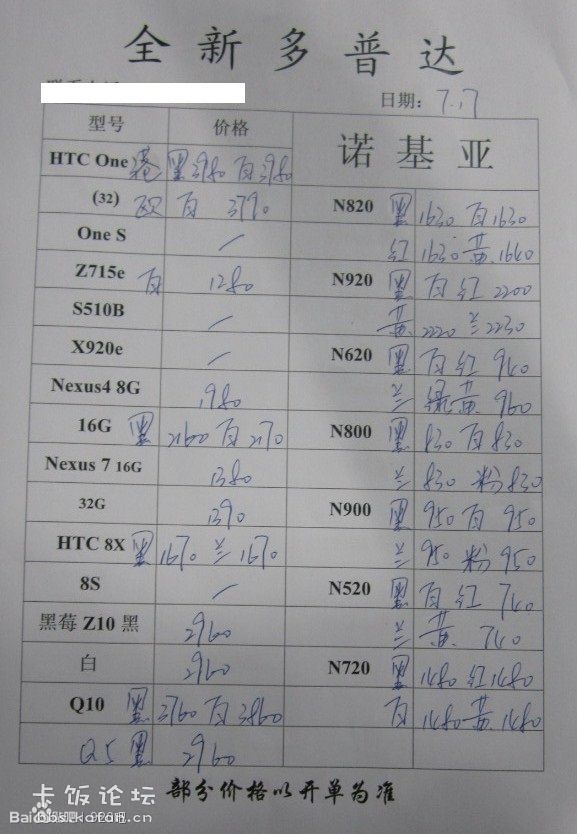 全新多普达
日期: 7.17
型号 价格 诺基亚
HTC One 港 黑3980 白3980
(32) 欧 白 3790 N820 黑 1630 白 1630
One S / 红 1630 黄 1640
Z715e 白 1280 N920 黑 白 红 2200
S510B / 黄 2220 兰 2230
X920e / N620 黑 白 红 940
Nexus4 8G 1980 兰 绿 黄 960
16G 黑 2160 白 2170 N800 黑 830 白 830
Nexus 7 16G 1380 兰 830 粉 830
32G 1390 N900 黑 950 白 950
HTC 8X 黑 1670 兰 1670 兰 950 粉 950
8S / N520 黑 白 红 740
黑莓 Z10 黑 2960 兰 黄 740
白 2960 N720 黑 1480 红 1480
Q10 黑 3760 白 3860 白 1480 黄 1480
Q5 黑 2960
部分价格以开单为准
卡饭论坛
bbs.kafan.cn